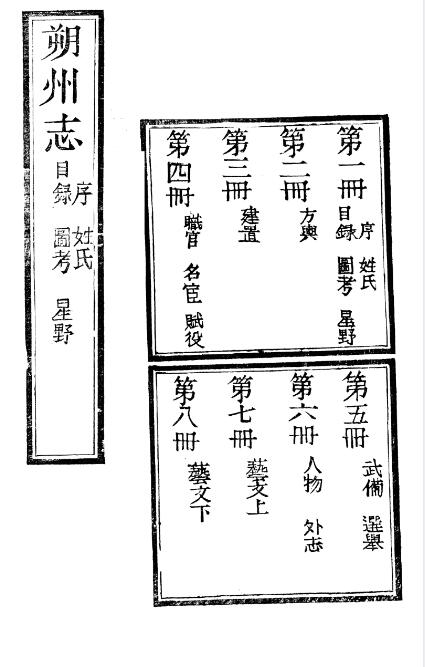 朔州志
序 姓氏
目録 圖考 星野
第一冊
序 姓氏
目録 圖考 星野
第二冊
方輿
第三冊
建置
第四冊
職官 名宦 賦役
第五冊
武備 選舉
第六冊
人物 外志
第七冊
藝文上
第八冊
藝文下